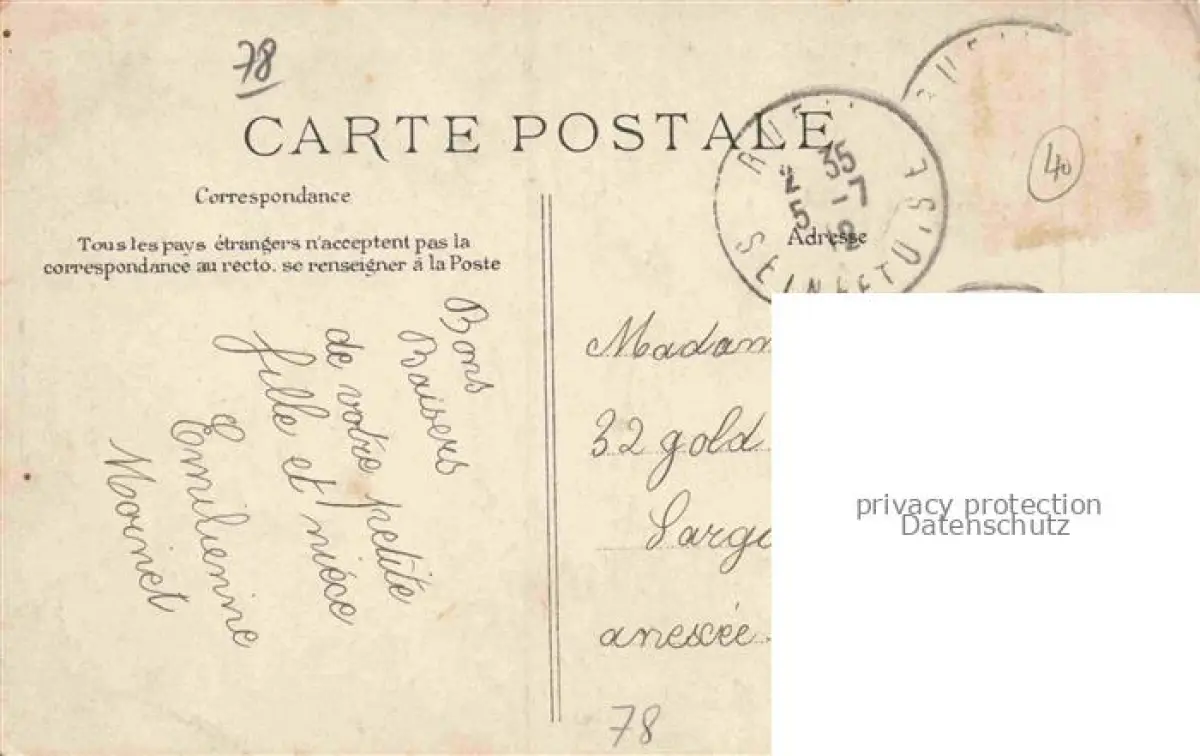 78
CARTE POSTALE
Correspondance
Tous les pays étrangers n'acceptent pas la
correspondance au recto. se renseigner à la Poste
Bons
Baisers
de votre petite
fille et nièce
Emilienne
Mornet
35
2 -7
5 -12
SEINE ET OISE
40
Adresse
Madam
32 gold
anexée
78
privacy protection
Datenschutz